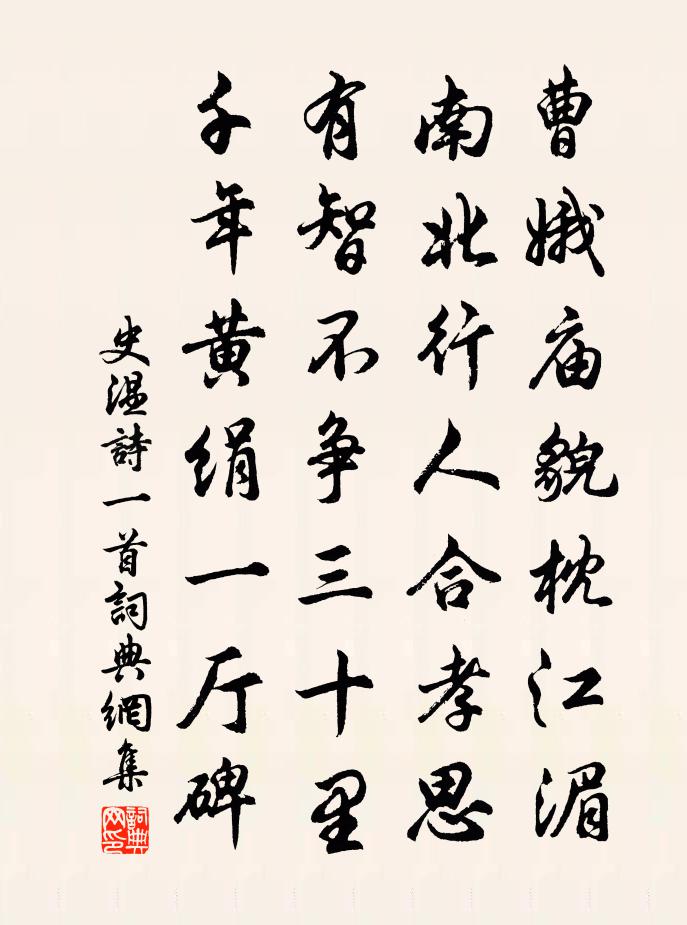 曹娥庙貌枕江湄
南北行人合孝思
有智不争三十里
千年黄绢一厅碑
史温詩一首詞典網集
詞典网印